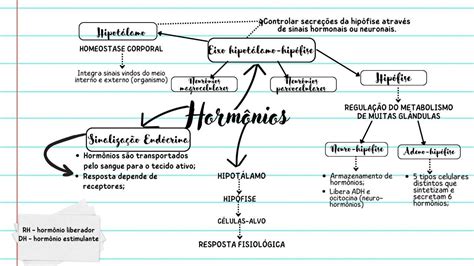 Controlar secreções da hipófise através
de sinais hormonais ou neuronais.
Hipotálamo
HOMEOSTASE CORPORAL
Integra sinais vindos do meio
interno e externo (organismo)
Eixo hipotálamo-hipófise
Neurônios
magnocelulares
Neurônios
parvocelulares
Hipófise
REGULAÇÃO DO METABOLISMO
DE MUITAS GLÂNDULAS
Hormônios
Sinalização Endócrina
• Hormônios são transportados
pelo sangue para o tecido ativo;
• Resposta depende de
receptores;
HIPOTÁLAMO
HIPÓFISE
CÉLULAS-ALVO
RESPOSTA FISIOLÓGICA
Neuro-hipófise
• Armazenamento de
hormônios;
• Libera ADH e
ocitocina (neuro-
hormônios)
Adeno-hipófise
• 5 tipos celulares
distintos que
sintetizam e
secretam 6
hormônios;
RH - hormônio liberador
DH - hormônio estimulante